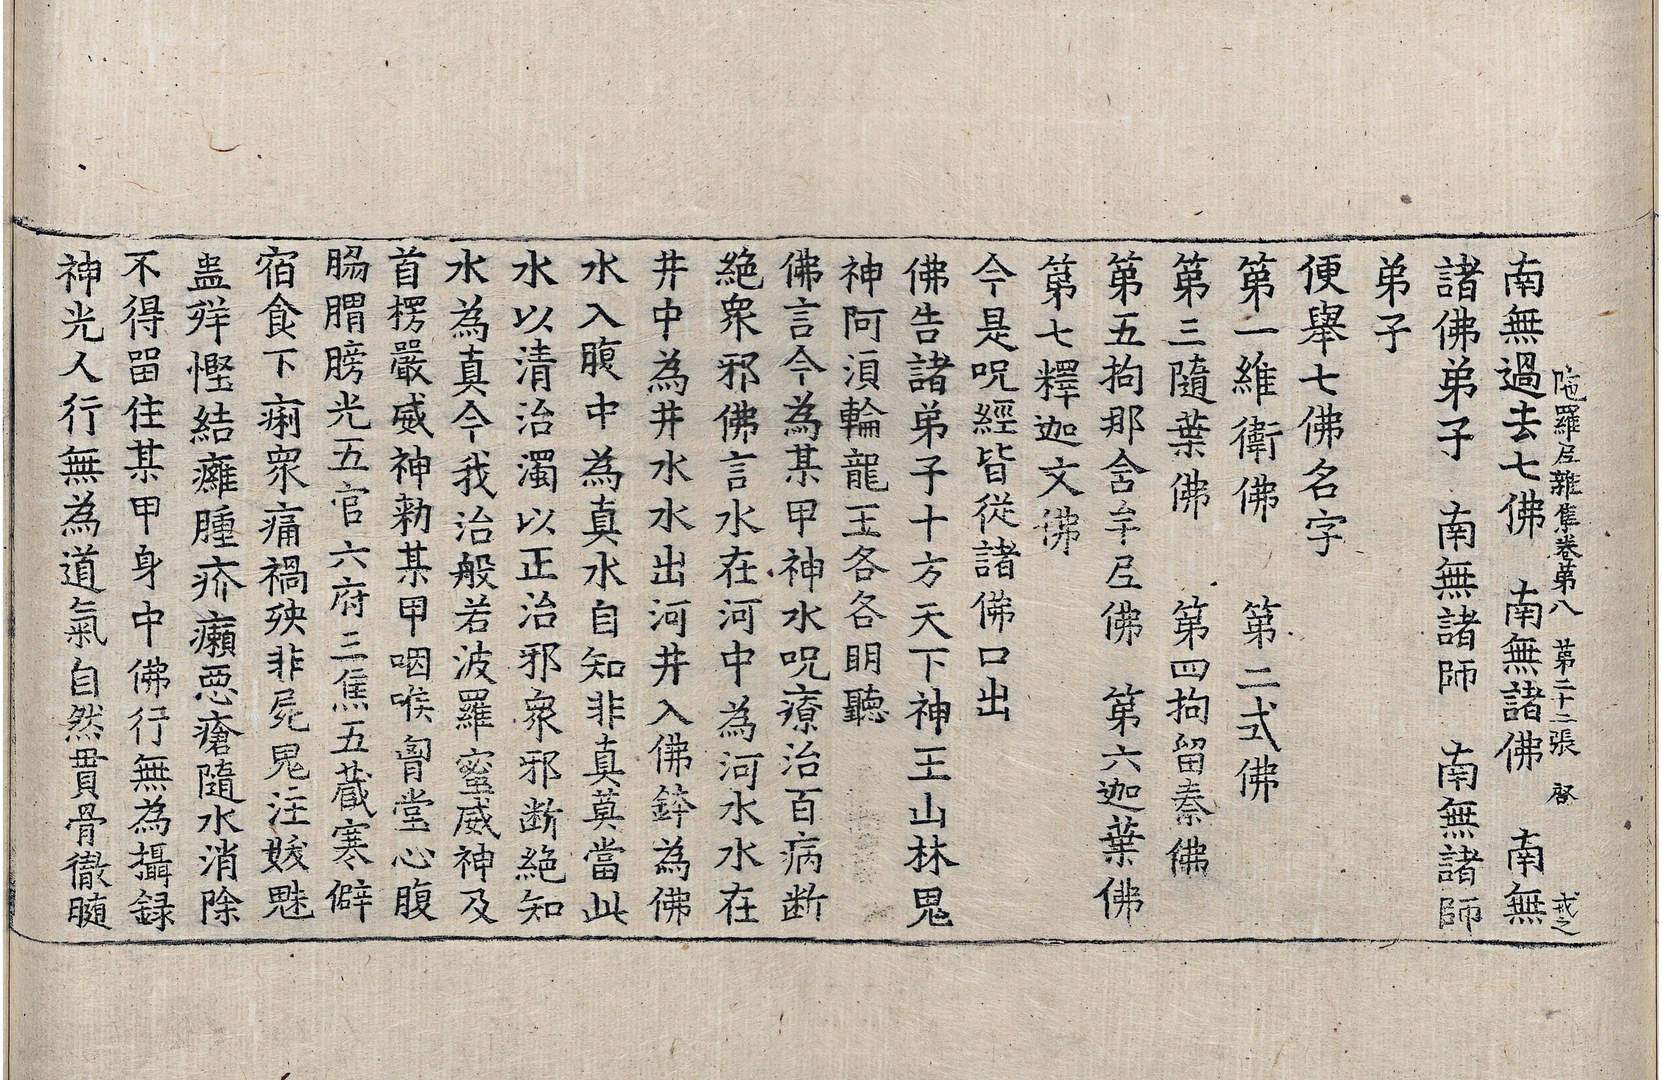 陁羅尼雜集卷第八 第二十二張 啓 戒之
南無過去七佛 南無諸佛 南無
諸佛弟子 南無諸師 南無諸師
弟子
便舉七佛名字
第一維衛佛 第二式佛
第三隨葉佛 第四拘留秦佛
第五拘那舍牟尼佛 第六迦葉佛
第七釋迦文佛
今是呪經皆從諸佛口出
佛告諸弟子十方天下神王山林鬼
神阿湏輪龍王各各明聽
佛言今為某甲神水呪療治百病断
絶衆邪佛言水在河中為河水水在
井中為井水水出河井入佛鉢為佛
水入腹中為真水自知非真莫當此
水以清治濁以正治邪衆邪断絶知
水為真今我治般若波羅蜜威神及
首楞嚴威神勑某甲咽喉胷堂心腹
腸胃膀光五官六府三焦五蔵寒僻
宿食下痢衆痛禍殃非屍鬼注妭魅
蛊𢫬慳結癰腫疥癩惡瘡隨水消除
不得留住某甲身中佛行無為攝録
神光人行無為道氣自然貫骨徹髓